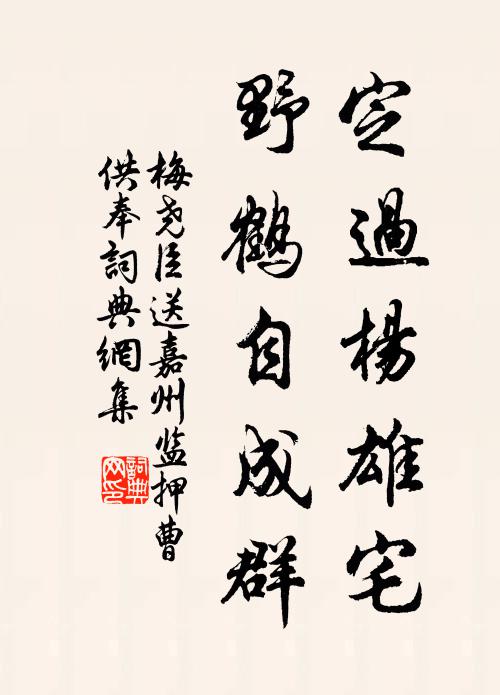 定過楊雄宅
野鶴自成群
梅尧臣送嘉州监押曹
供奉詞典網集
詞典
网印